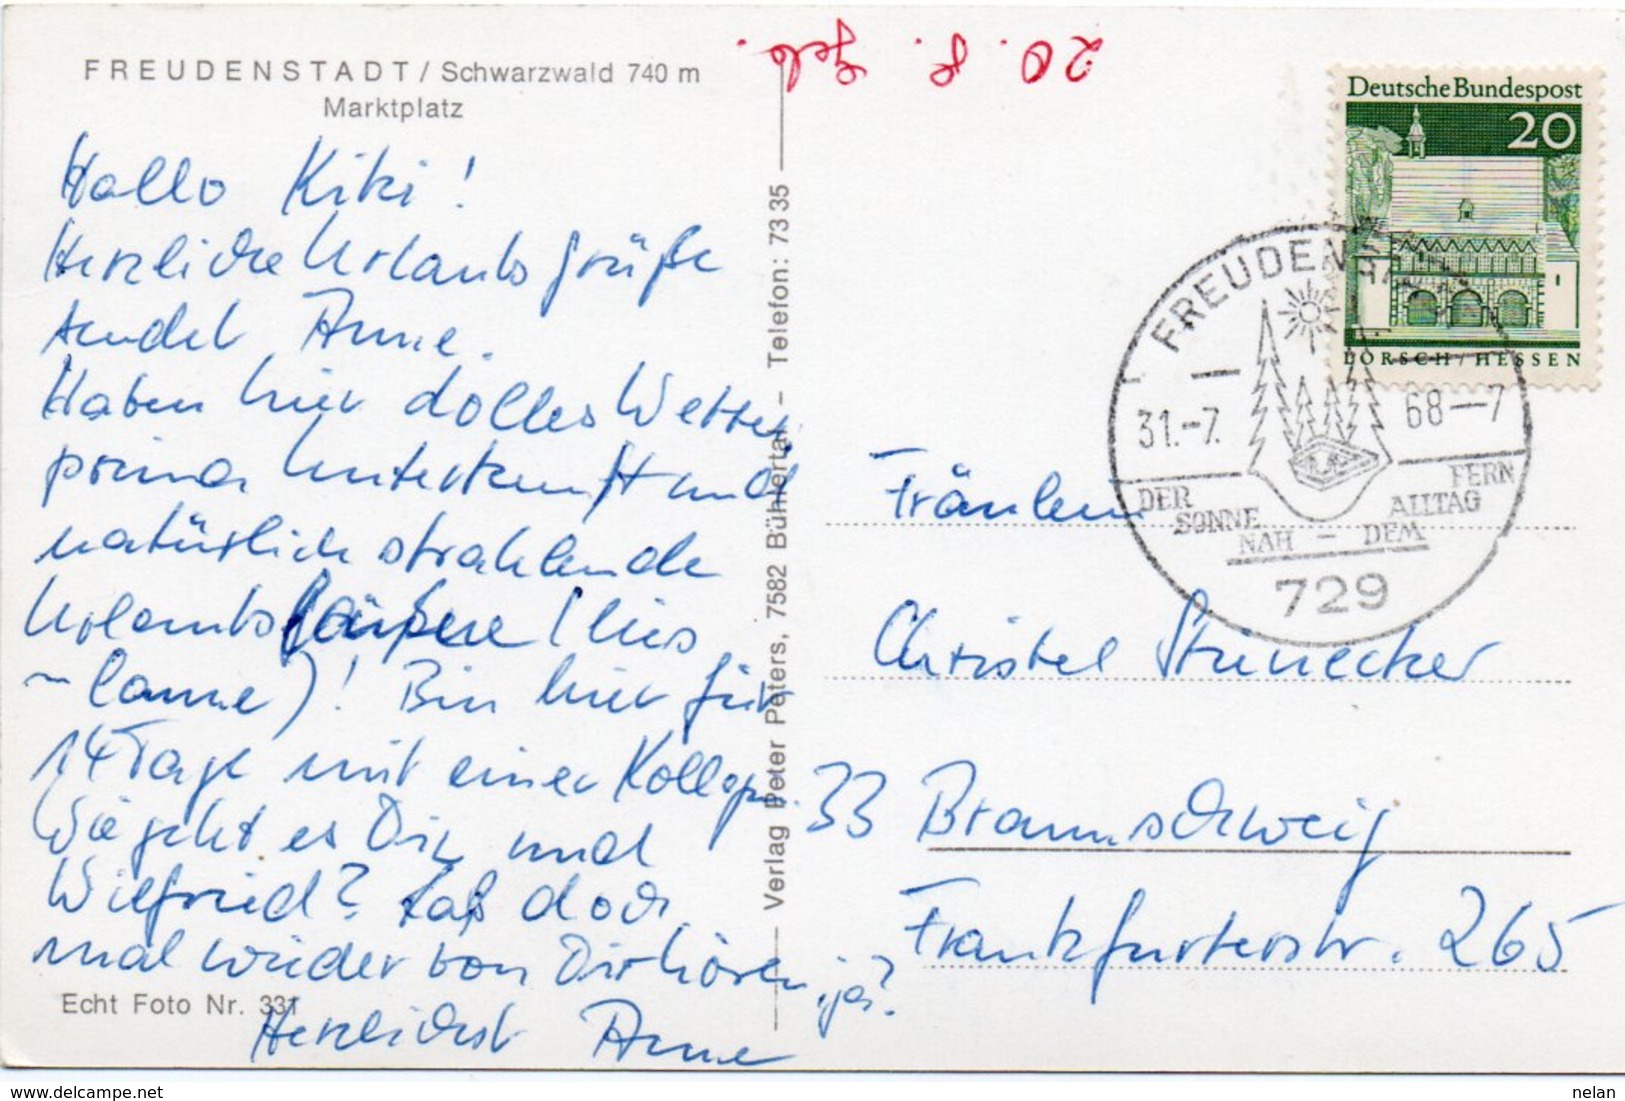 FREUDENSTADT / Schwarzwald 740 m
Marktplatz
Hallo Kiki!
Herzliche Urlaubsgrüße
sendet Anne.
Haben hier dolles Wetter,
prima Unterkunft und
natürlich strahlende
Urlaubs
laune)! Bin hier für
14 Tage mit einer Kollegin.
Wie geht es Dir und
Wilfried? Laß doch
mal wieder von Dir hören, ja?
Herzlichst Anne
Echt Foto Nr. 331
Verlag Peter Peters, 7582 Bühlertal - Telefon: 73 35
20. 8. geb.
Deutsche Bundespost
20
LORSCH / HESSEN
FREUDENSTADT
31.-7. 68-7
DER SONNE NAH - DEM ALLTAG FERN
729
Fräulein
Christel Strunecker
33 Braunschweig
Frankfurterstr. 265
nelan